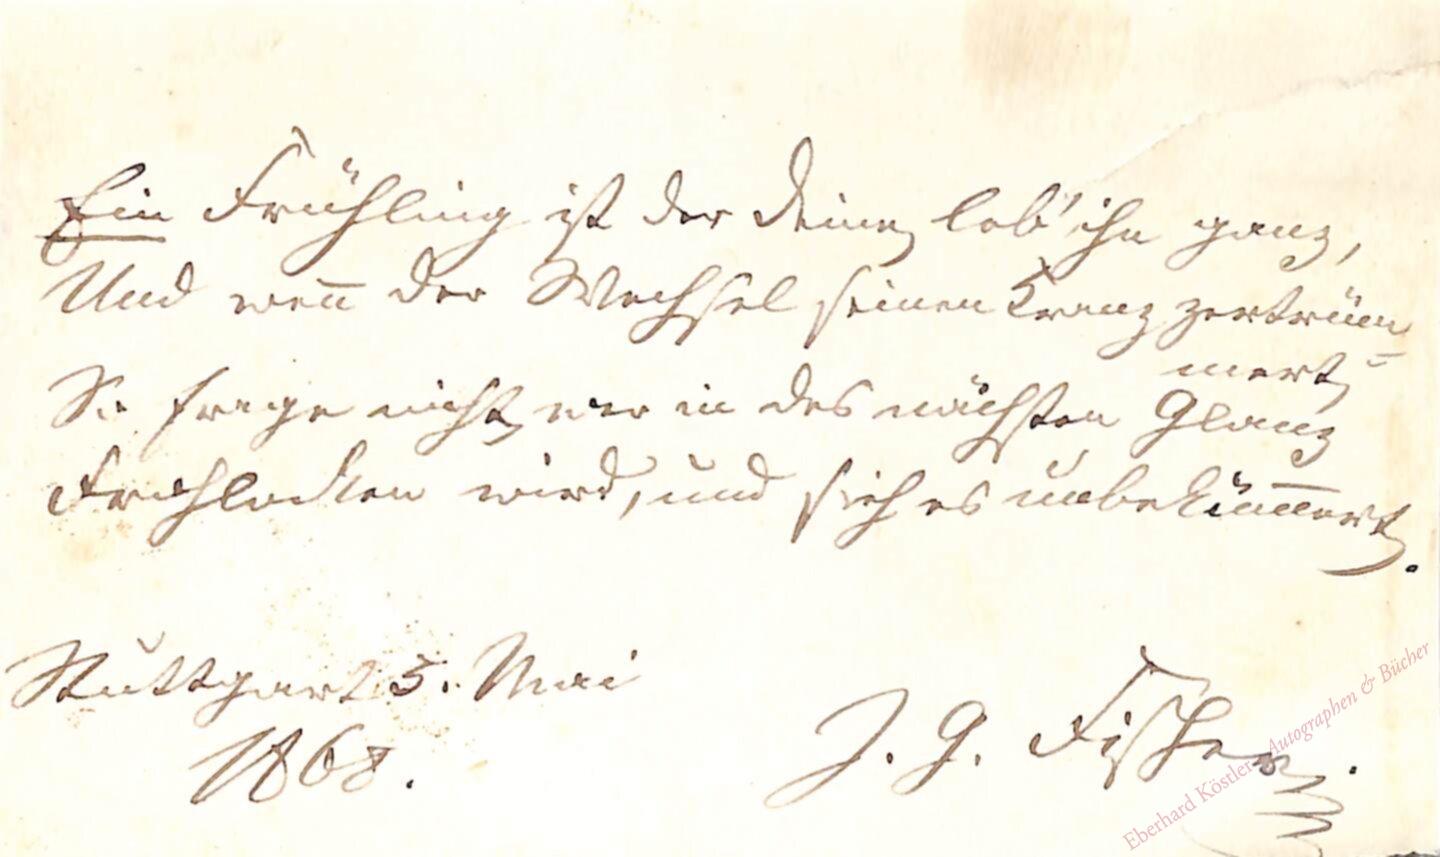 Ein Frühling ist der Deine, leb' ihn ganz,
Und wen̄ der Wechsel seinen Kranz zertrüm̄
mert,
So frage nicht, wer in des nächsten Glanz
Frohlocken wird, und sieh es unbeküm̄ert.
Stuttgart 5. Mai
1868.
J. G. Fischer.
Eberhard Köstler Autographen & Bücher